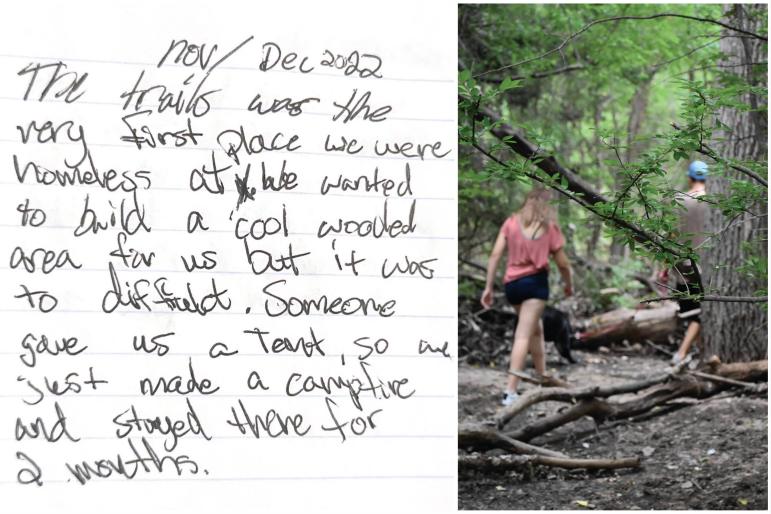 nov/Dec 2022
The trails was the
very first place we were
homeless at we wanted
to build a cool wooded
area for us but it was
to difficult. Someone
gave us a Tent, so we
just made a campfire
and stayed there for
2 months.